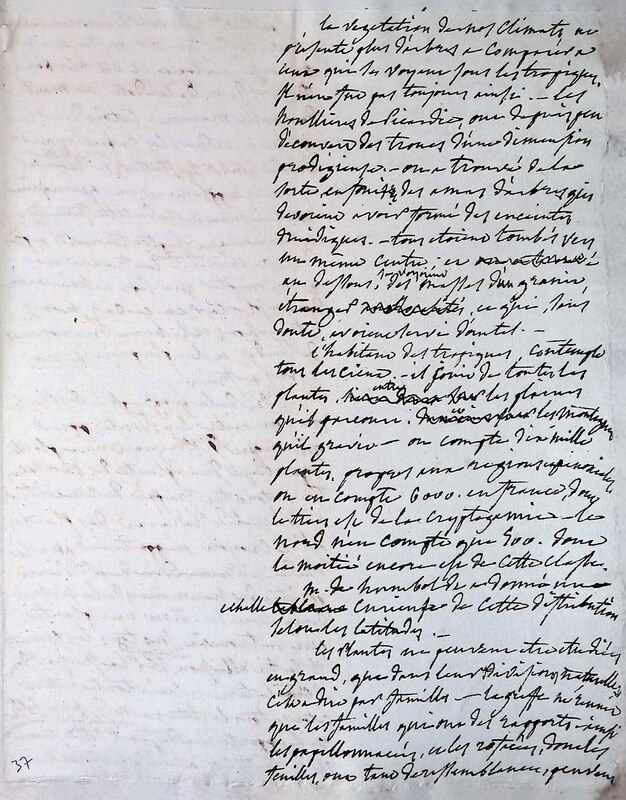 la vegetation de nos climats ne
présente plus d'arbres a comparer a
ceux qui se voyent sous les tropiques.
Il n'en fut pas toujours ainsi. — les
houllieres de Picardie, ont depuis peu
découvert des troncs d'une dimension
prodigieuse. — on a trouvé de la
sorte enfouis des amas d'arbres qui
devoient avoir formé des enceintes
druidiques. — tous etoient tombés vers
un même centre; et
au dessous, se voyoient des masses d'un granit
étranger, ce qui, sans
doute, avoient servi d'autel. —
l'habitant des tropiques, contemple
tous les cieux. — il jouit de toutes les
plantes, entre les plaines
qu'il parcourt, et les montagnes
qu'il gravit — on compte dix mille
plantes, propres aux régions equinoxiales
on en compte 6000. en france, dont
le tiers est de la cryptogamie — le
nord n'en compte que 500. dont
la moitié encore est de cette classe.
M. de humbolde a donné une
echelle curieuse de cette distribution
selon les latitudes. —
les plantes ne peuvent etre etudiées
en grand, que dans leurs divisions naturelles
c'est a dire par familles — la greffe ne réunit
que les familles qui ont des rapports — ainsi
les papillonnacées, et les rosacées, dont les
feuilles, ont tant de ressemblance, peuvent
37